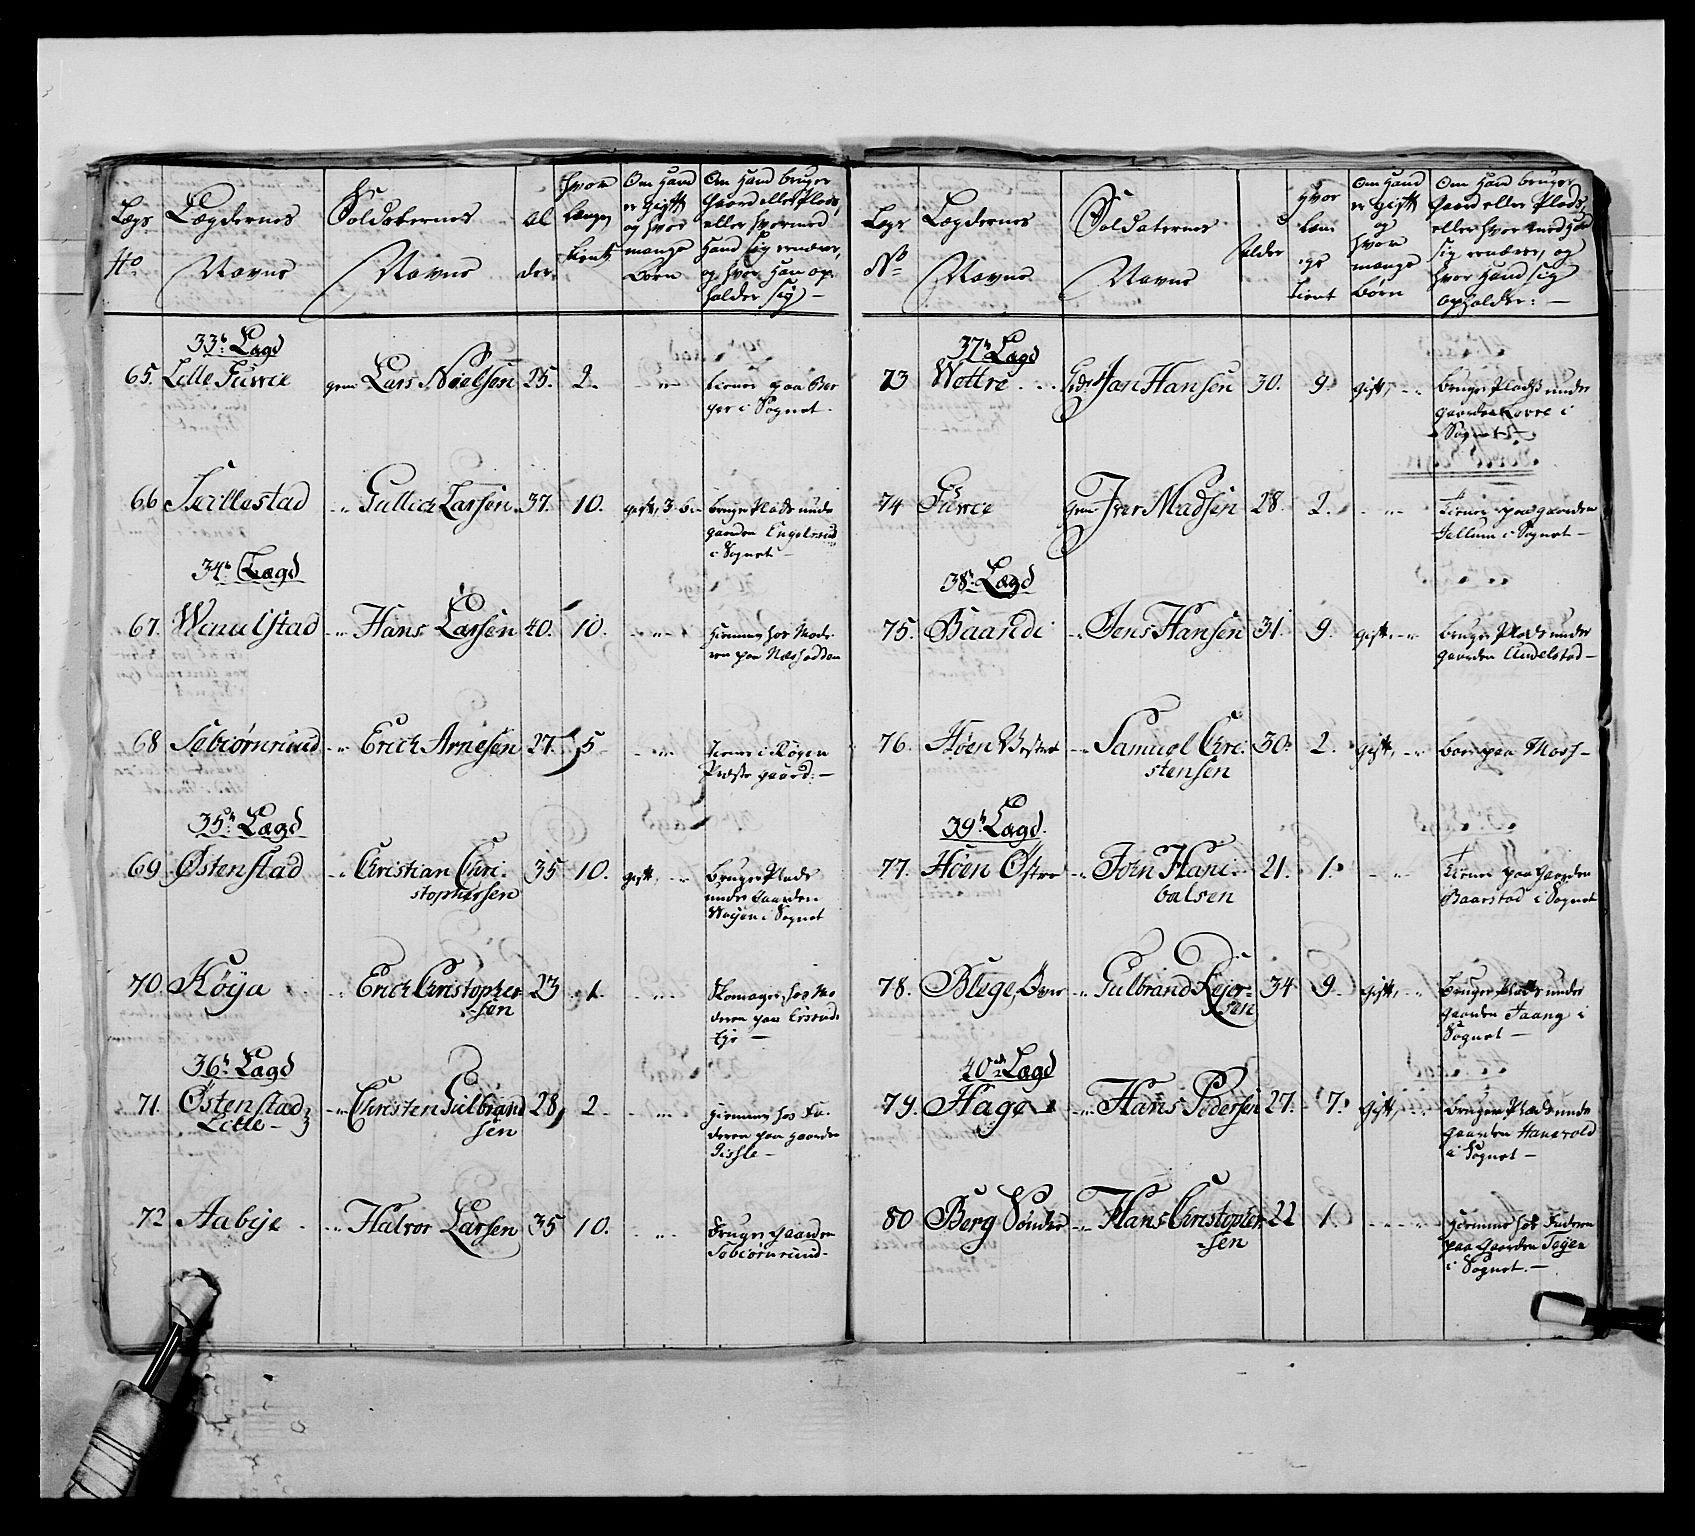 Legs No
Lægdernes Navne
Soldaternes Navne
Alder
hvor længe tient
Om hand er gift og hvor mange Børn
Om hand bruger Gaard eller Plads, eller hvormed hand sig ernærer, og hvor han opholder sig
33te Lægd
65. Lille Fuwie gem Lars Nielsen 25. 2. - "- tiener paa Ber
ger i Sognet.
66 Terllestad "- Gullich Larsen 37. 10. gift, 3. b: bruger Plads unde
gaarden Engelsrud
i Sognet -
34te Lægd
67. Waualstad "- Hans Larsen 40. 10. - "- hiemme hos Mode
ren paa Næshodden
68 Tobiørnrund "- Erich Arnesen 27. 5 - "- tiener i Røgen
Præste gaard: -
35te Lægd
69 Østenstad "- Christian Chri- 35 10. gift, "- bruger Plads
stophersen under Gaarden
Wøyen i Sognet
70. Køya "- Erich Christopher 23 1. - "- Skomager, hos Mo
-sen deren paa
Eye -
36te Lægd
71. Østenstad "- Christen Gulbrand 28, 2 - "- hiemme hos Fa
Litle - sen deren paa gaarden
Gissle -
72 Aabye - "- Halvor Larsen 35 10. - "- bruger gaarden
Tobiørnrund -
Legs No
Lægdernes Navne
Soldaternes Navne
alder
hvor længe tient
Om hand er gift og hvor mange børn
Om hand bruger Gaard eller Plads, eller hvormed hand sig ernærer, og hvor hand sig opholder: -
37te Lægd
73 Wettre - Jan Hansen 30. 9. gift, - bruger Plads under
gaarden Lovre i
Sognet -
74 Fuwie gem Iver Madsen 28. 2. - "- Tiener paa gaarden
Jellum i Sognet -
38te Lægd
75. Baandi "- Jens Hansen 31. 9. gift, "- bruger Plads under
gaarden Andelstad -
76. Høen Vestre "- Samuel Chri- 30. 2. gift, "- boer paa Moss -
stensen
39te Lægd
77. Høen Østre "- Jørn Hani- 21. 1. - "- Tiener paa Gaarden
balsen Baarstad i Sognet
78. Blege, Øvre "- Gulbrand Reier- 34 9. gift, "- bruger Plads under
sen gaarden Jaang i
Sognet -
40de Lægd
79. Hage "- Hans Pedersen 27. 7. gift, "- bruger Plads unde
gaarden Hanevold
i Sognet -
80 Berg Søndre "- Hans Christopher 22 1. - "- hiemme hos Faderen
-sen paa Gaarden Togen
i Sognet. -